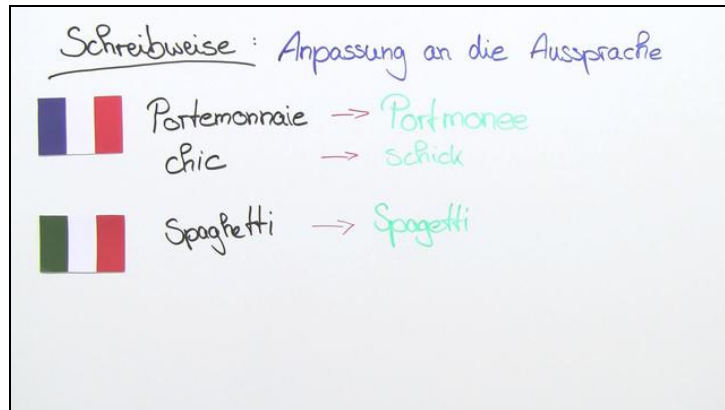 Schreibweise: Anpassung an die Aussprache
Portemonnaie → Portmonee
chic → schick
Spaghetti → Spagetti